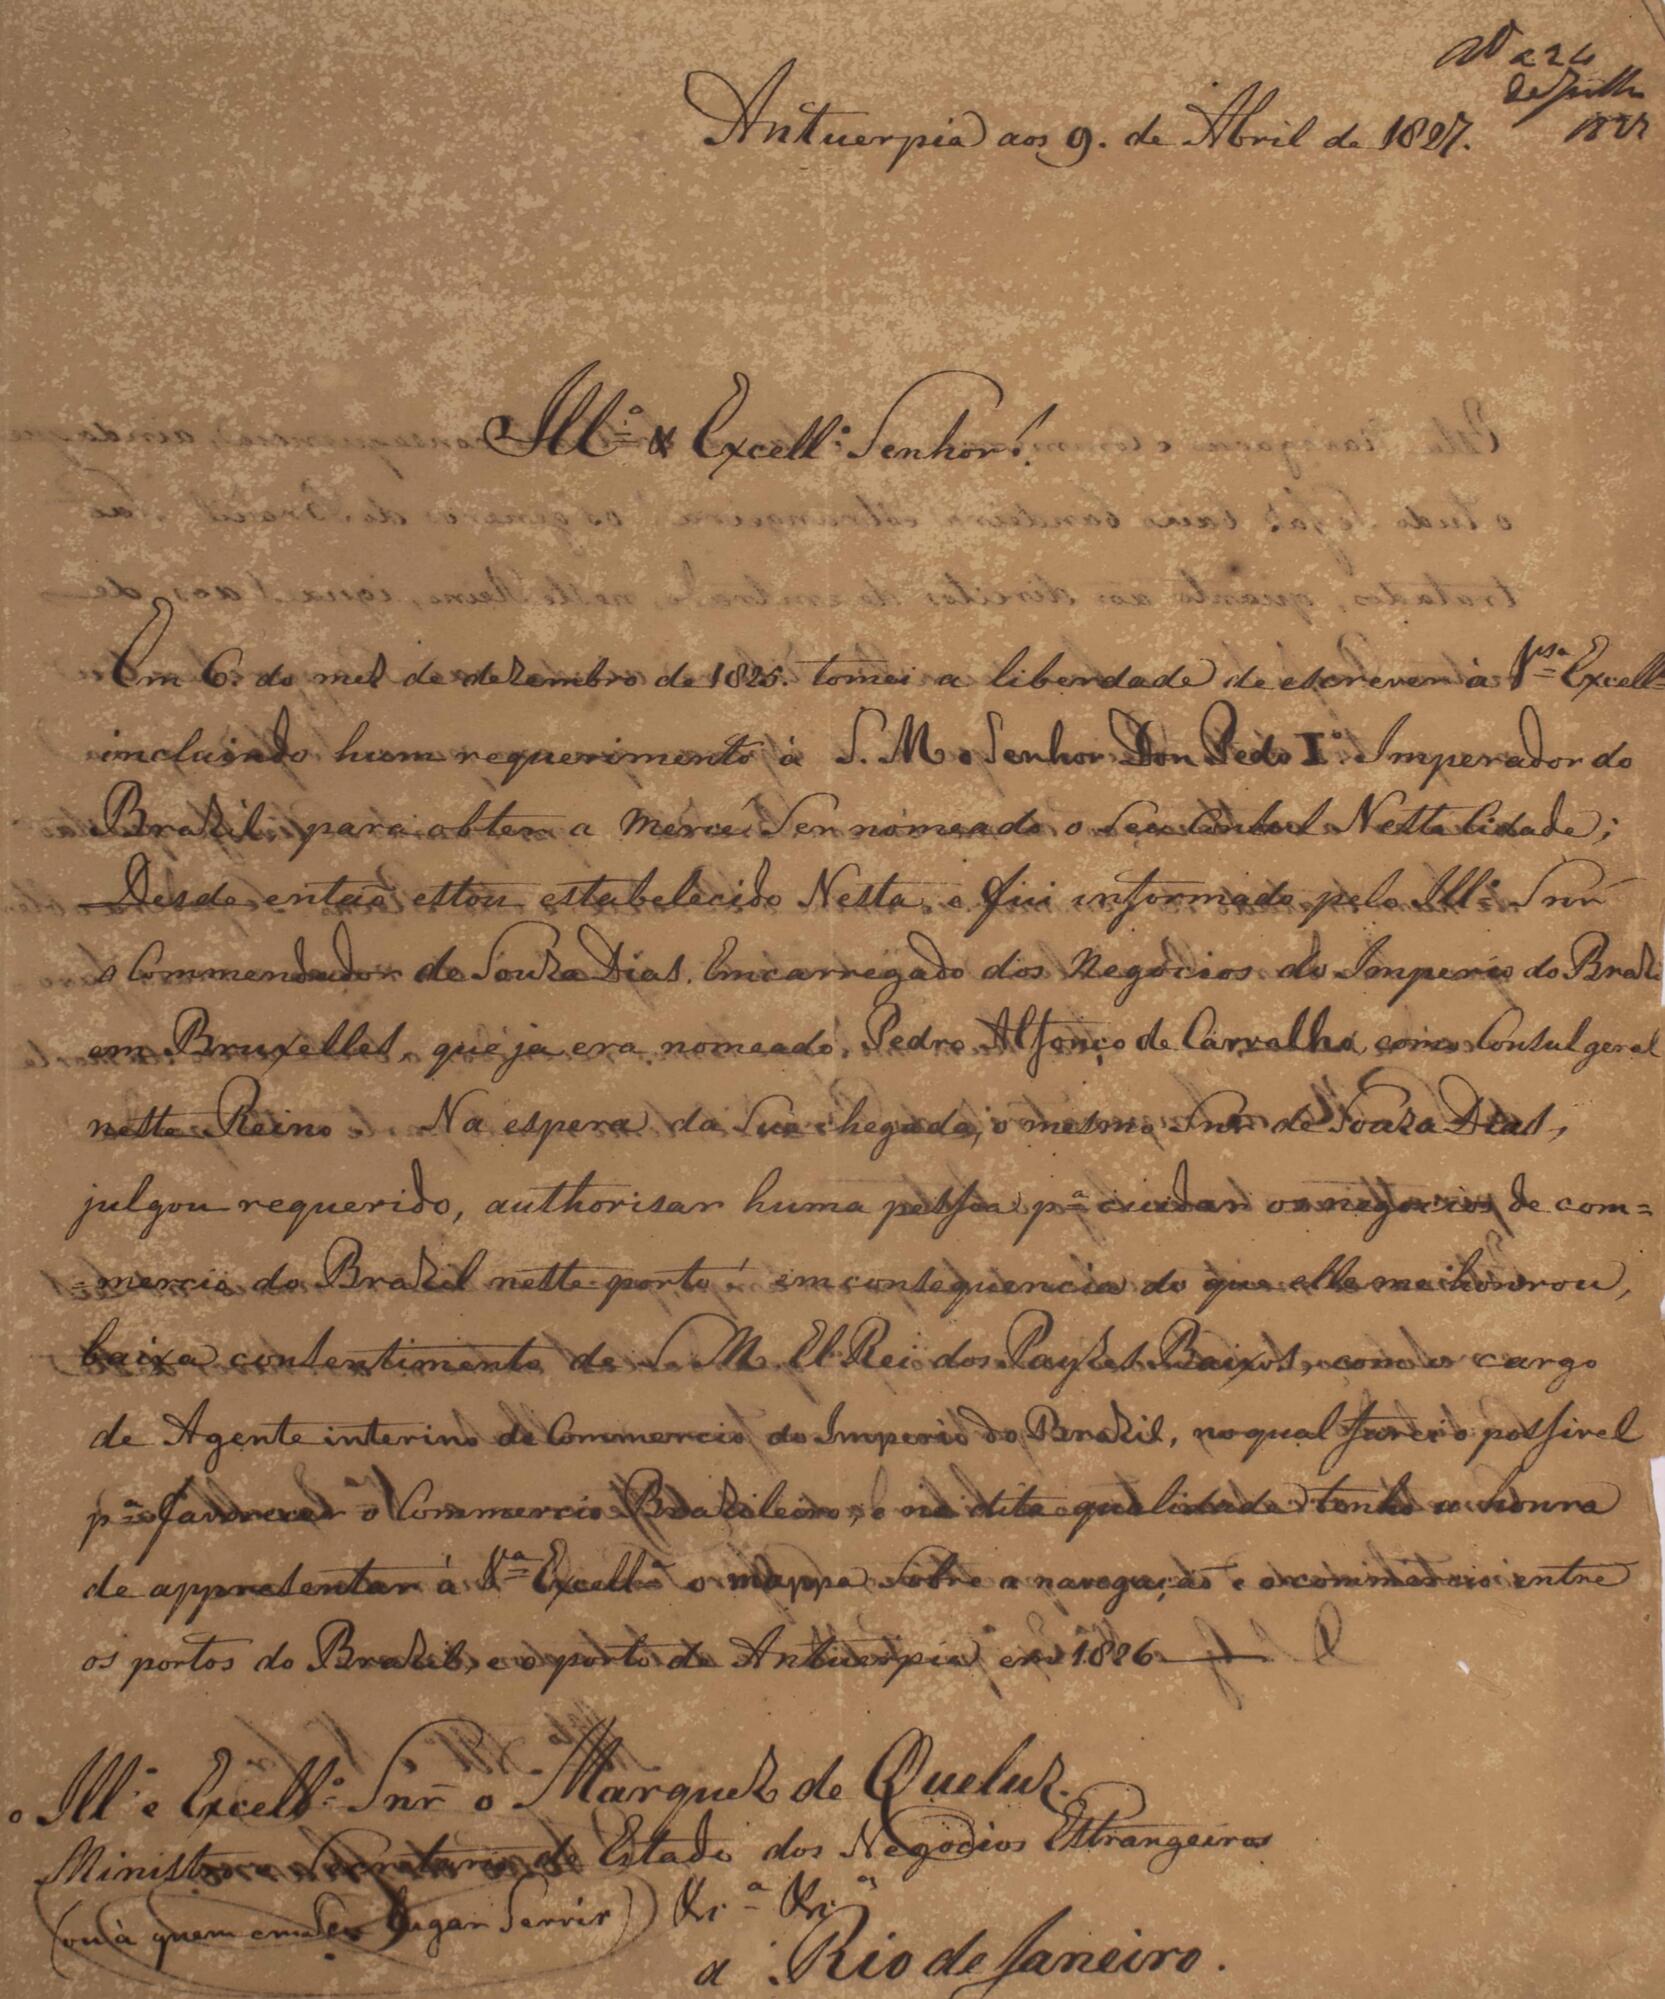 a 24
de Julho
1827
Antuerpia aos 9. de Abril de 1827.
Ill.º & Excell.º Senhor!
Em 6. do mez de dezembro de 1825. tomei a liberdade de escrever à Vsa Excellª
incluindo hum requerimento à S. M. o Senhor Don Pedo Iº Imperador do
Brazil, para obter a mercé Ser nomeado o Seu Consul Nesta Cidade;
Desde entaõ estou estabelecido Nesta, e fui informado pelo Ill.º Snr
o Commendador de Souza Dias. Emcarregado dos Negocios do Imperio do Brazil
em Bruxelles, que ja era nomeado, Pedro Alfonço de Carvalho, como Consul geral
neste Reino. Na espera da Sua chegada, o mesmo Snr de Souza Dias,
julgou requerido, authorisar huma pessoa pª cuidar os negocios de com=
=mercio do Brazil neste porto; em consequencia do que elle me honrou,
baixa consentimento de S. M. El Rei dos Payzes Baixos, com o cargo
de Agente interino de Commercio do Imperio do Brazil, no qual farei o possivel
pª favorecer o Commercio Brazileiro; e na dita qualidade tenho a honra
de appresentar á Vª Excellª o mappa Sobre a navegação e o commercio entre
os portos do Brazil, e o porto de Antuerpia em 1826
o Ill.º e Excell.º Snr o Marquez de Queluz.
Ministro e Secretario de Estado dos Negocios Estrangeiros
(ou à quem em Seu lugar Servir) &ª &ª
a Rio de Janeiro.